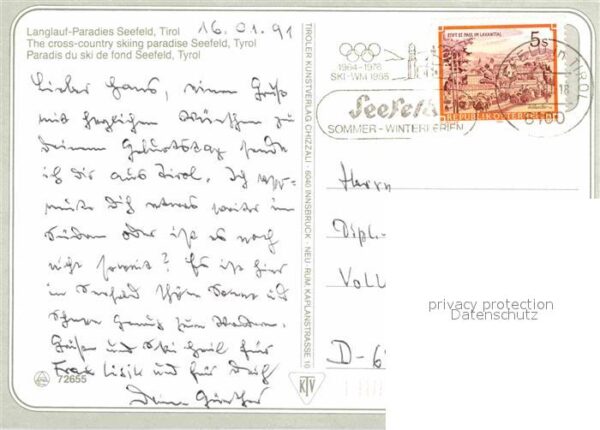 Langlauf-Paradies Seefeld, Tirol
The cross-country skiing paradise Seefeld, Tyrol
Paradis du ski de fond Seefeld, Tyrol
16.01.91
Lieber Hans, einen Gruß
mit herzlichen Wünschen zu
Deinem Geburtstag sende
ich Dir aus Tirol. Ich
Dich etwas weiter im
Süden oder ist es noch
nicht soweit? Es ist hier
in Seefeld schön Sonne und
Schnee genug zum Wandern.
Grüße und Ski heil für
Frau und für Dich
Deine Günther
72655
TIROLER KUNSTVERLAG CHIZZALI · 6040 INNSBRUCK · NEU RUM, KAPLANSTRASSE 16
KTV
1964-1976
SKI-WM 1985
Seefeld
SOMMER - WINTERFERIEN
STIFT ST. PAUL IM LAVANTTAL
5 S
REPUBLIK ÖSTERREICH
TIROL
18
6100
Herrn
Dipl.-
Voll
D-6
privacy protection
Datenschutz